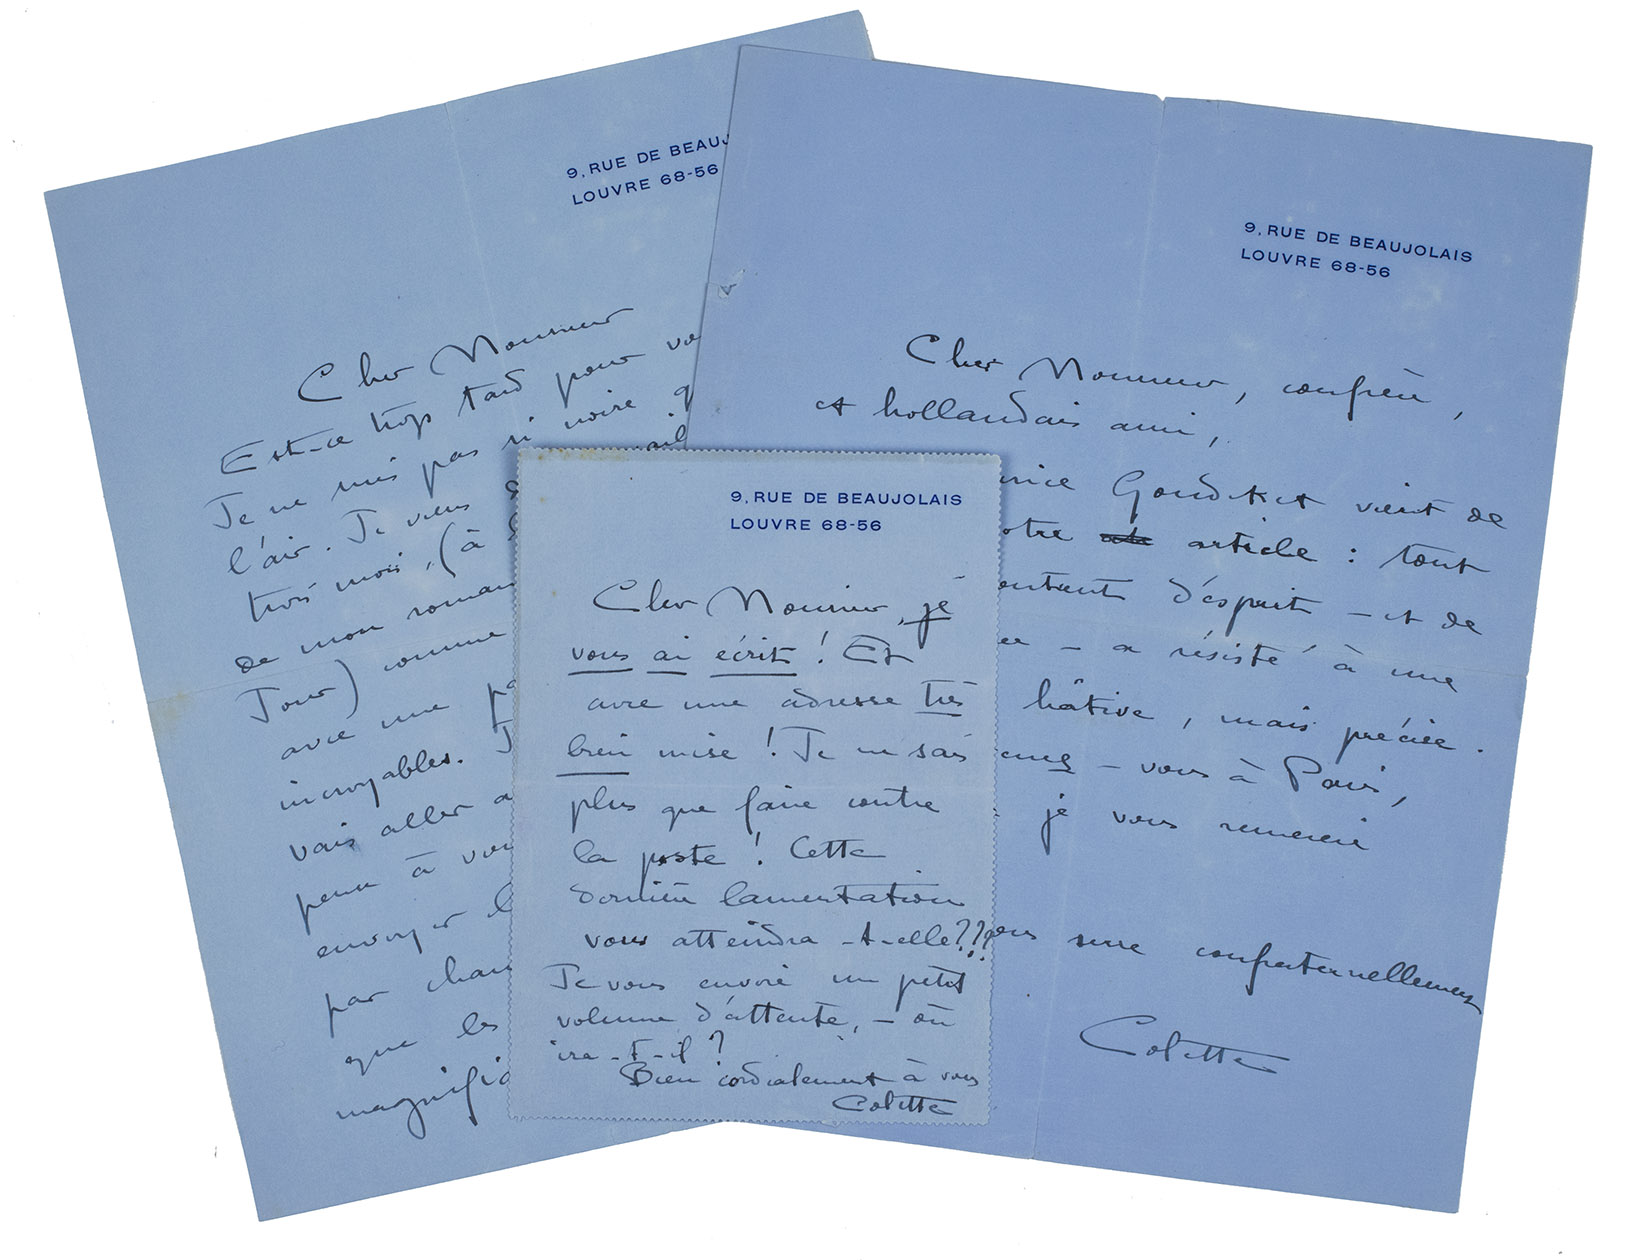 9, RUE DE BEAUJ
LOUVRE 68-56
Cher Monsieur
Est-ce trop tard pour
Je ne suis pas si noire
l'air. Je viens
trois mois, (à
de mon roman
Jour) comme
avec une
incroyables. J
vais aller
peux à vou
envoyer
par
que les
magnific
9, RUE DE BEAUJOLAIS
LOUVRE 68-56
Cher Monsieur, confrère,
et hollandais ami,
Goudeket vient de
otre article : tout
d'esprit – et de
– a résisté à une
hâtive, mais précise.
– vous à Paris,
je vous remercie
serre confraternellement
Colette
9, RUE DE BEAUJOLAIS
LOUVRE 68-56
Cher Monsieur, je
vous ai écrit ! Et
avec une adresse très
bien mise ! Je ne sais
plus que faire contre
la poste ! Cette
dernière lamentation
vous atteindra-t-elle???
Je vous envoie un petit
volume d'attente, – où
ira-t-il ?
Bien cordialement à vous
Colette